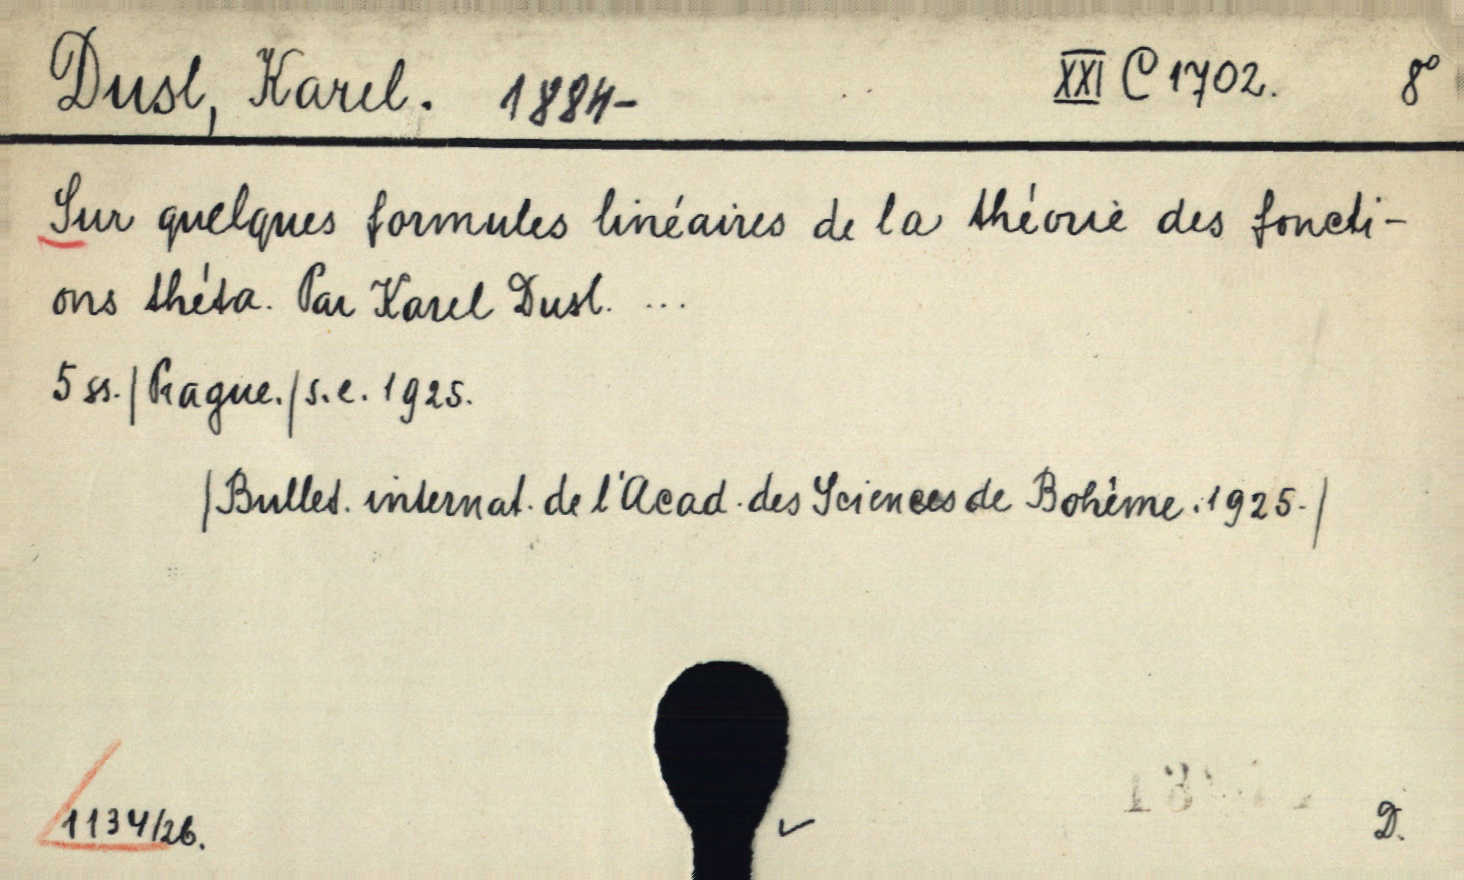 Dusl, Karel. 1884- XXI C 1702. 8°
Sur quelques formules linéaires de la théorie des foncti-
ons théta. Par Karel Dusl. ...
5 ss. / Prague. / s. e. 1925.
/ Bullet. internat. de l'Acad. des Sciences de Bohême. 1925. /
1134/26.
D.